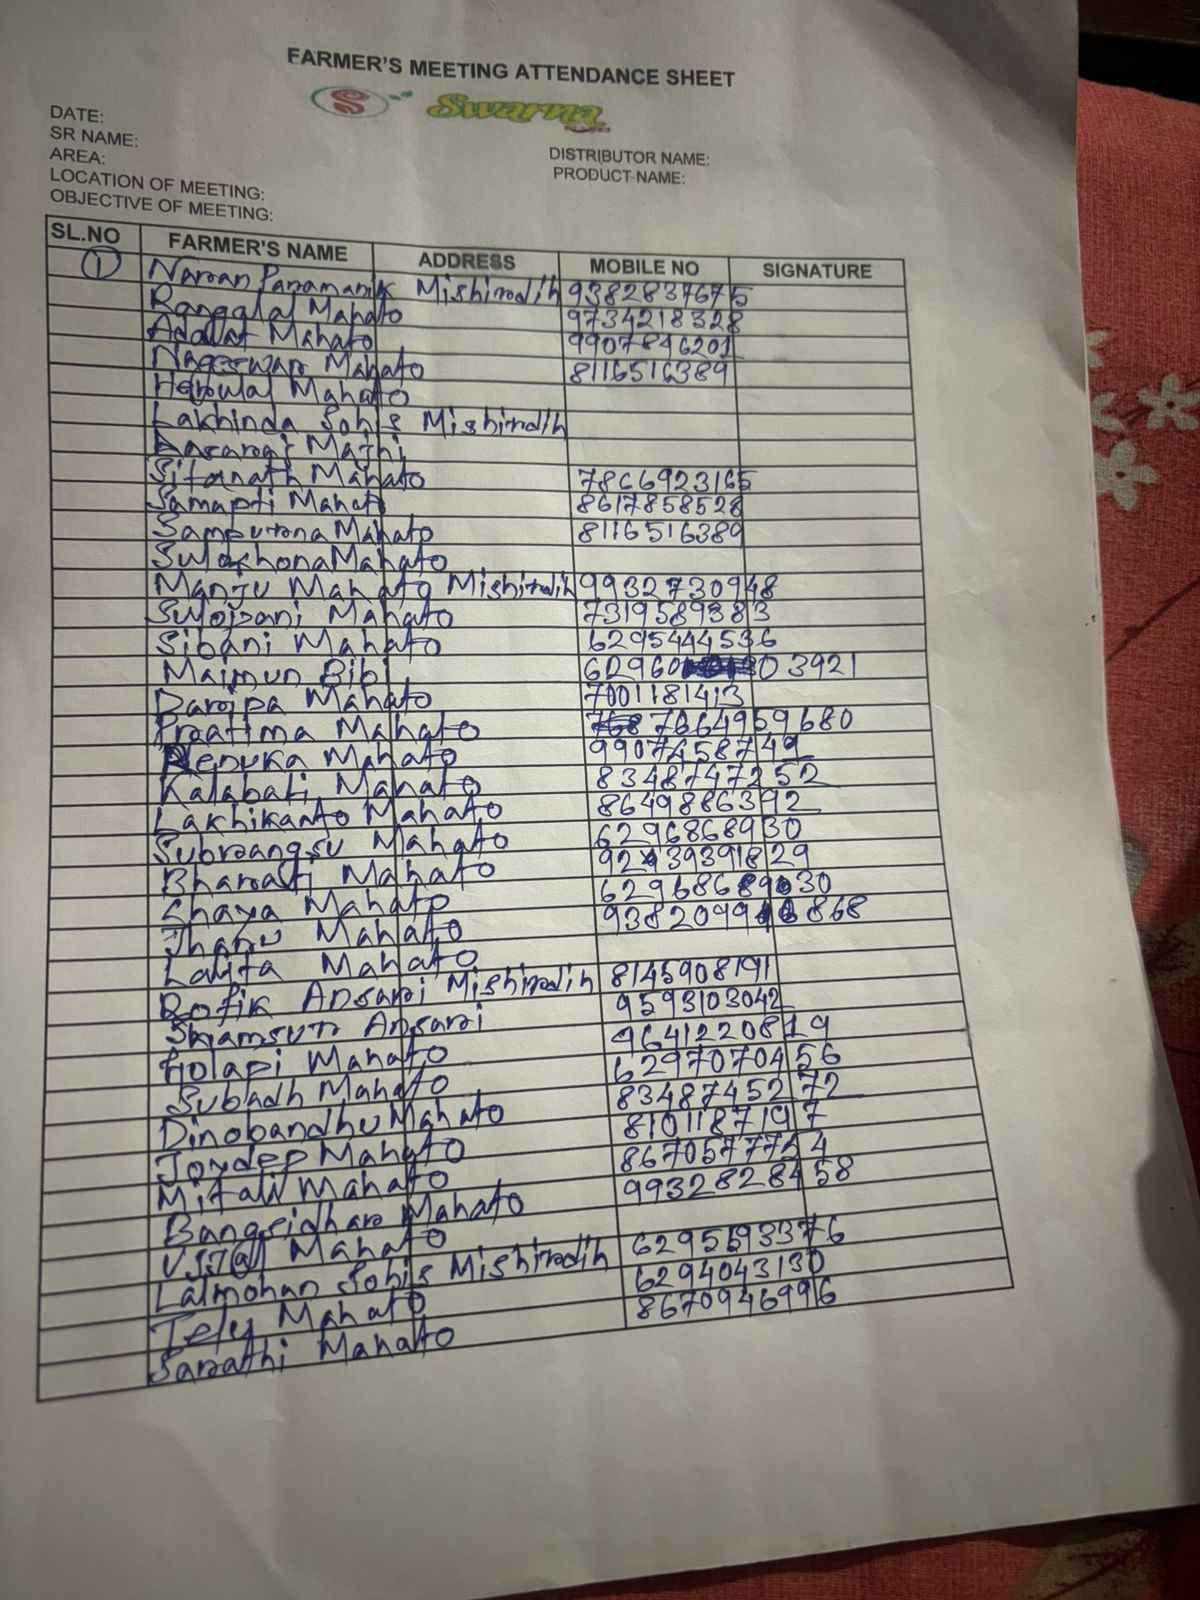 FARMER'S MEETING ATTENDANCE SHEET
S Swarna
DATE:
SR NAME:
AREA:
LOCATION OF MEETING:
OBJECTIVE OF MEETING:
DISTRIBUTOR NAME:
PRODUCT NAME:
SL.NO FARMER'S NAME ADDRESS MOBILE NO SIGNATURE
1 Naroan Paramanik Mishirdih 9382837675
Rangalal Mahato 9734218328
Adalat Mahato 9907846201
Nageswar Mahato 8116516389
Mahato
Lakhinda Sohis Mishirdih
Majhi
Sitanath Mahato 7866923165
Samapti Mahato 8617858528
Sampurna Mahato 8116516389
Sulochona Mahato
Manju Mahato Mishirdih 9932730948
Mahato 7319589383
Sibani Mahato 6295444536
Maimun Bibi 62960 03921
Mahato 7001181413
Pratima Mahato 7864959680
Renuka Mahato 9907458749
Kalabati Mahato 8348747252
Lakhikanto Mahato 8649886392
Subrangsu Mahato 6296868930
Bharati Mahato
Chaya Mahato
Jhanu Mahato
Lalita Mahato
Rofik Ansari Mishirdih 8145908191
Ansari 9593103042
Golapi Mahato 9641220819
Subadh Mahato 6297070456
Dinobandhu Mahato 8348745272
Joydep Mahato 8101187197
Mitali Mahato 8670577754
Bangsidhar Mahato 9932828458
Mahato
Lalmohan Sohis Mishirdih 6295593376
Telu Mahato 6294043130
Sarathi Mahato 8670946996